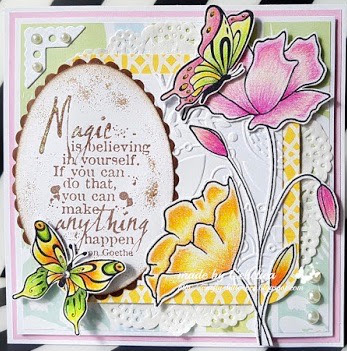 Magic
is believing
in yourself.
If you can
do that,
you can
make
anything
happen
von Goethe
made by